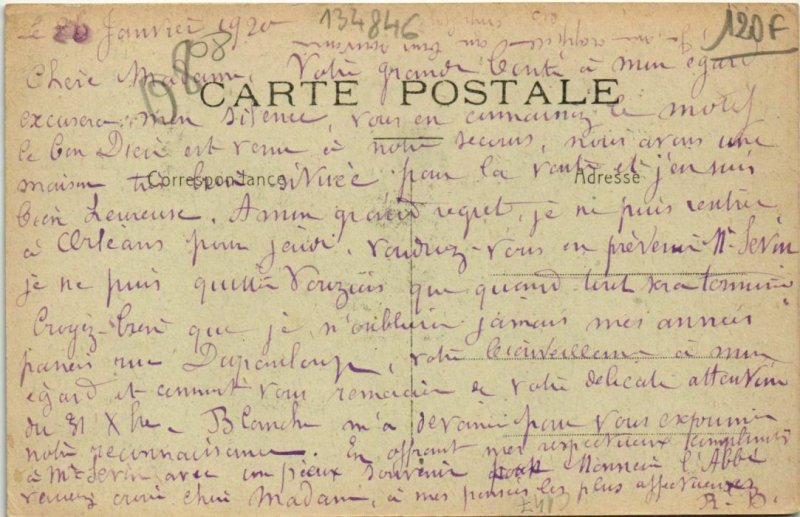 Le 26 Janvier 1920
134846
120F
Chère Madame, Votre grande bonté à mon égard
CARTE POSTALE
excusera mon silence, vous en connaissez le motif,
le bon Dieu est venu à notre secours, nous avons une
maison très bien située pour la vente et j'en suis
Correspondance
Adresse
bien heureuse. A mon grand regret, je ne puis rentrer
à Orléans pour jeudi, voudriez-vous en prévenir Mr Sevin
je ne puis quitter Vouziers que quand tout sera terminé
Croyez-bien que je n'oublierai jamais mes années
passées rue Dupanloup, votre bienveillance à mon
égard et comment vous remercier de votre délicate attention
du 31 Xbre. Blanche m'a devancé pour vous exprimer
notre reconnaissance. En offrant mes respectueux compliments
à Mr Sevin avec un pieux souvenir pour Monsieur l'Abbé
veuillez croire chère Madame, à mes pensées les plus affectueuses
R. B.